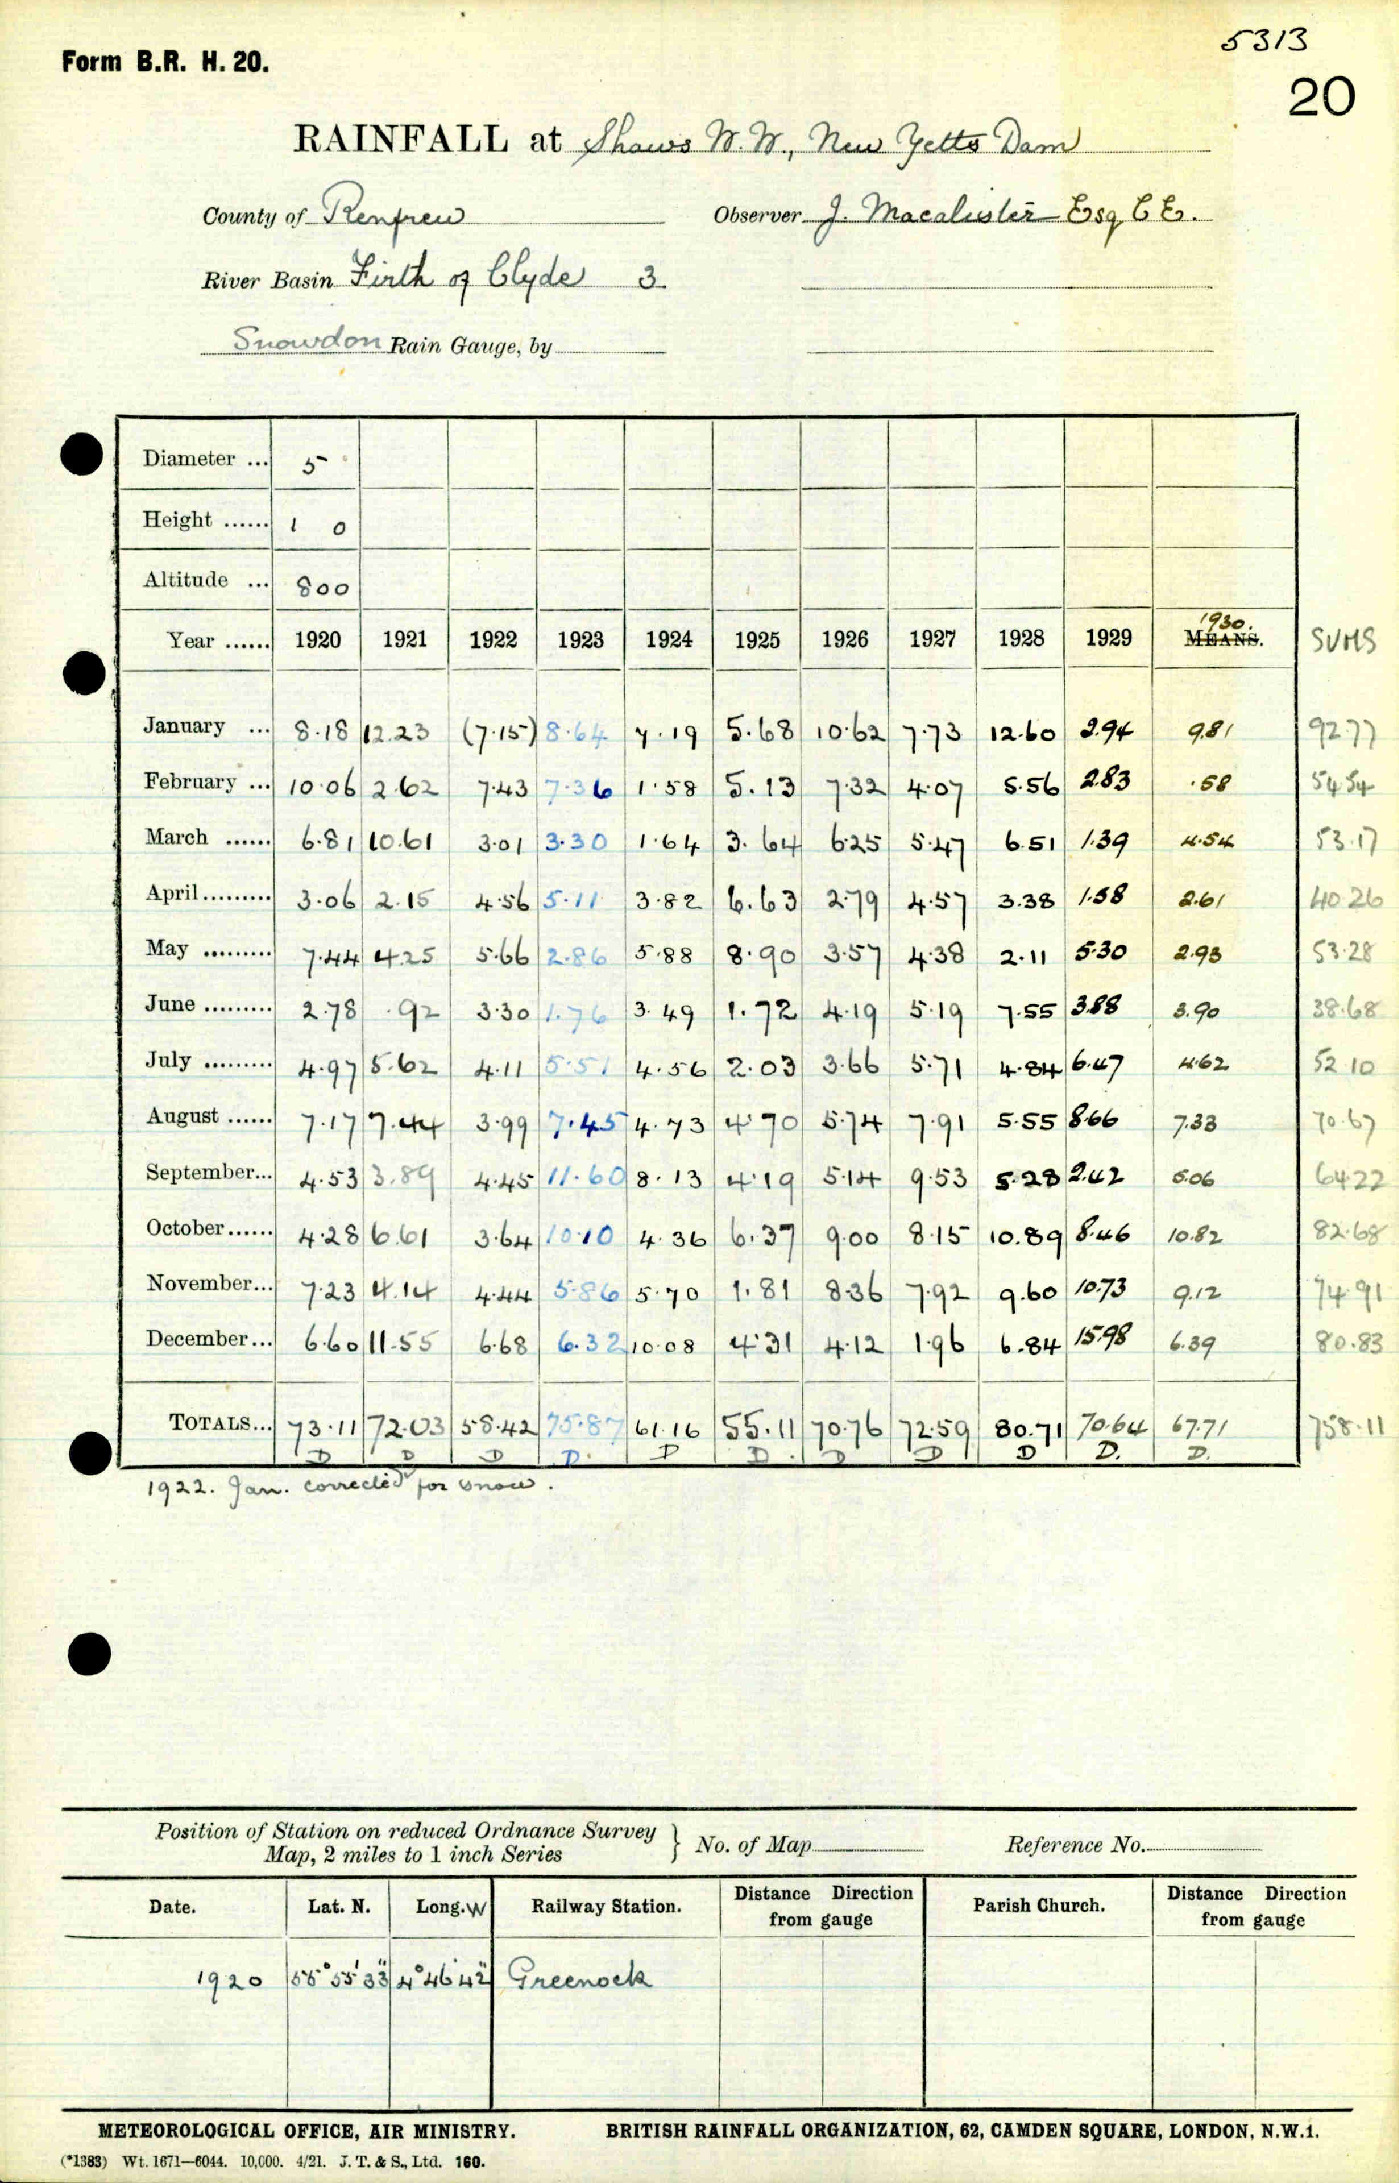 5313
Form B.R. H. 20.
20
RAINFALL at Shaws W.W., New Yetts Dam
County of Renfrew Observer J. Macalister Esq C E.
River Basin Firth of Clyde 3
Snowdon Rain Gauge, by
Diameter ... 5
Height ...... 1 0
Altitude ... 800
1930.
Year ...... 1920 1921 1922 1923 1924 1925 1926 1927 1928 1929 MEANS. SUMS
January ... 8.18 12.23 (7.15) 8.64 7.19 5.68 10.62 7.73 12.60 2.94 9.81 92.77
February ... 10.06 2.62 7.43 7.36 1.58 5.13 7.32 4.07 5.56 2.83 .58 54.54
March ...... 6.81 10.61 3.01 3.30 1.64 3.64 6.25 5.47 6.51 1.39 4.54 53.17
April ......... 3.06 2.15 4.56 5.11 3.82 6.63 2.79 4.57 3.38 1.58 2.61 40.26
May ......... 7.44 4.25 5.66 2.86 5.88 8.90 3.57 4.38 2.11 5.30 2.93 53.28
June ......... 2.78 .92 3.30 1.76 3.49 1.72 4.19 5.19 7.55 3.88 3.90 38.68
July ......... 4.97 5.62 4.11 5.51 4.56 2.03 3.66 5.71 4.84 6.47 4.62 52.10
August ...... 7.17 7.44 3.99 7.45 4.73 4.70 5.74 7.91 5.55 8.66 7.33 70.67
September... 4.53 3.89 4.45 11.60 8.13 4.19 5.14 9.53 5.28 2.42 5.06 64.22
October ...... 4.28 6.61 3.64 10.10 4.36 6.37 9.00 8.15 10.89 8.46 10.82 82.68
November... 7.23 4.14 4.44 5.86 5.70 1.81 8.36 7.92 9.60 10.73 9.12 74.91
December... 6.60 11.55 6.68 6.32 10.08 4.31 4.12 1.96 6.84 15.98 6.39 80.83
TOTALS... 73.11 72.03 58.42 75.87 61.16 55.11 70.76 72.59 80.71 70.64 67.71 758.11
D D D D. D D. D D D D. D.
1922. Jan. corrected for snow.
Position of Station on reduced Ordnance Survey
Map, 2 miles to 1 inch Series } No. of Map Reference No.
Date. Lat. N. Long. W Railway Station. Distance Direction from gauge Parish Church. Distance Direction from gauge
1920 55° 55' 33" 4° 46' 42" Greenock
METEOROLOGICAL OFFICE, AIR MINISTRY. BRITISH RAINFALL ORGANIZATION, 62, CAMDEN SQUARE, LONDON, N.W.1.
(*1383) Wt. 1671—6044. 10,000. 4/21. J. T. & S., Ltd. 160.